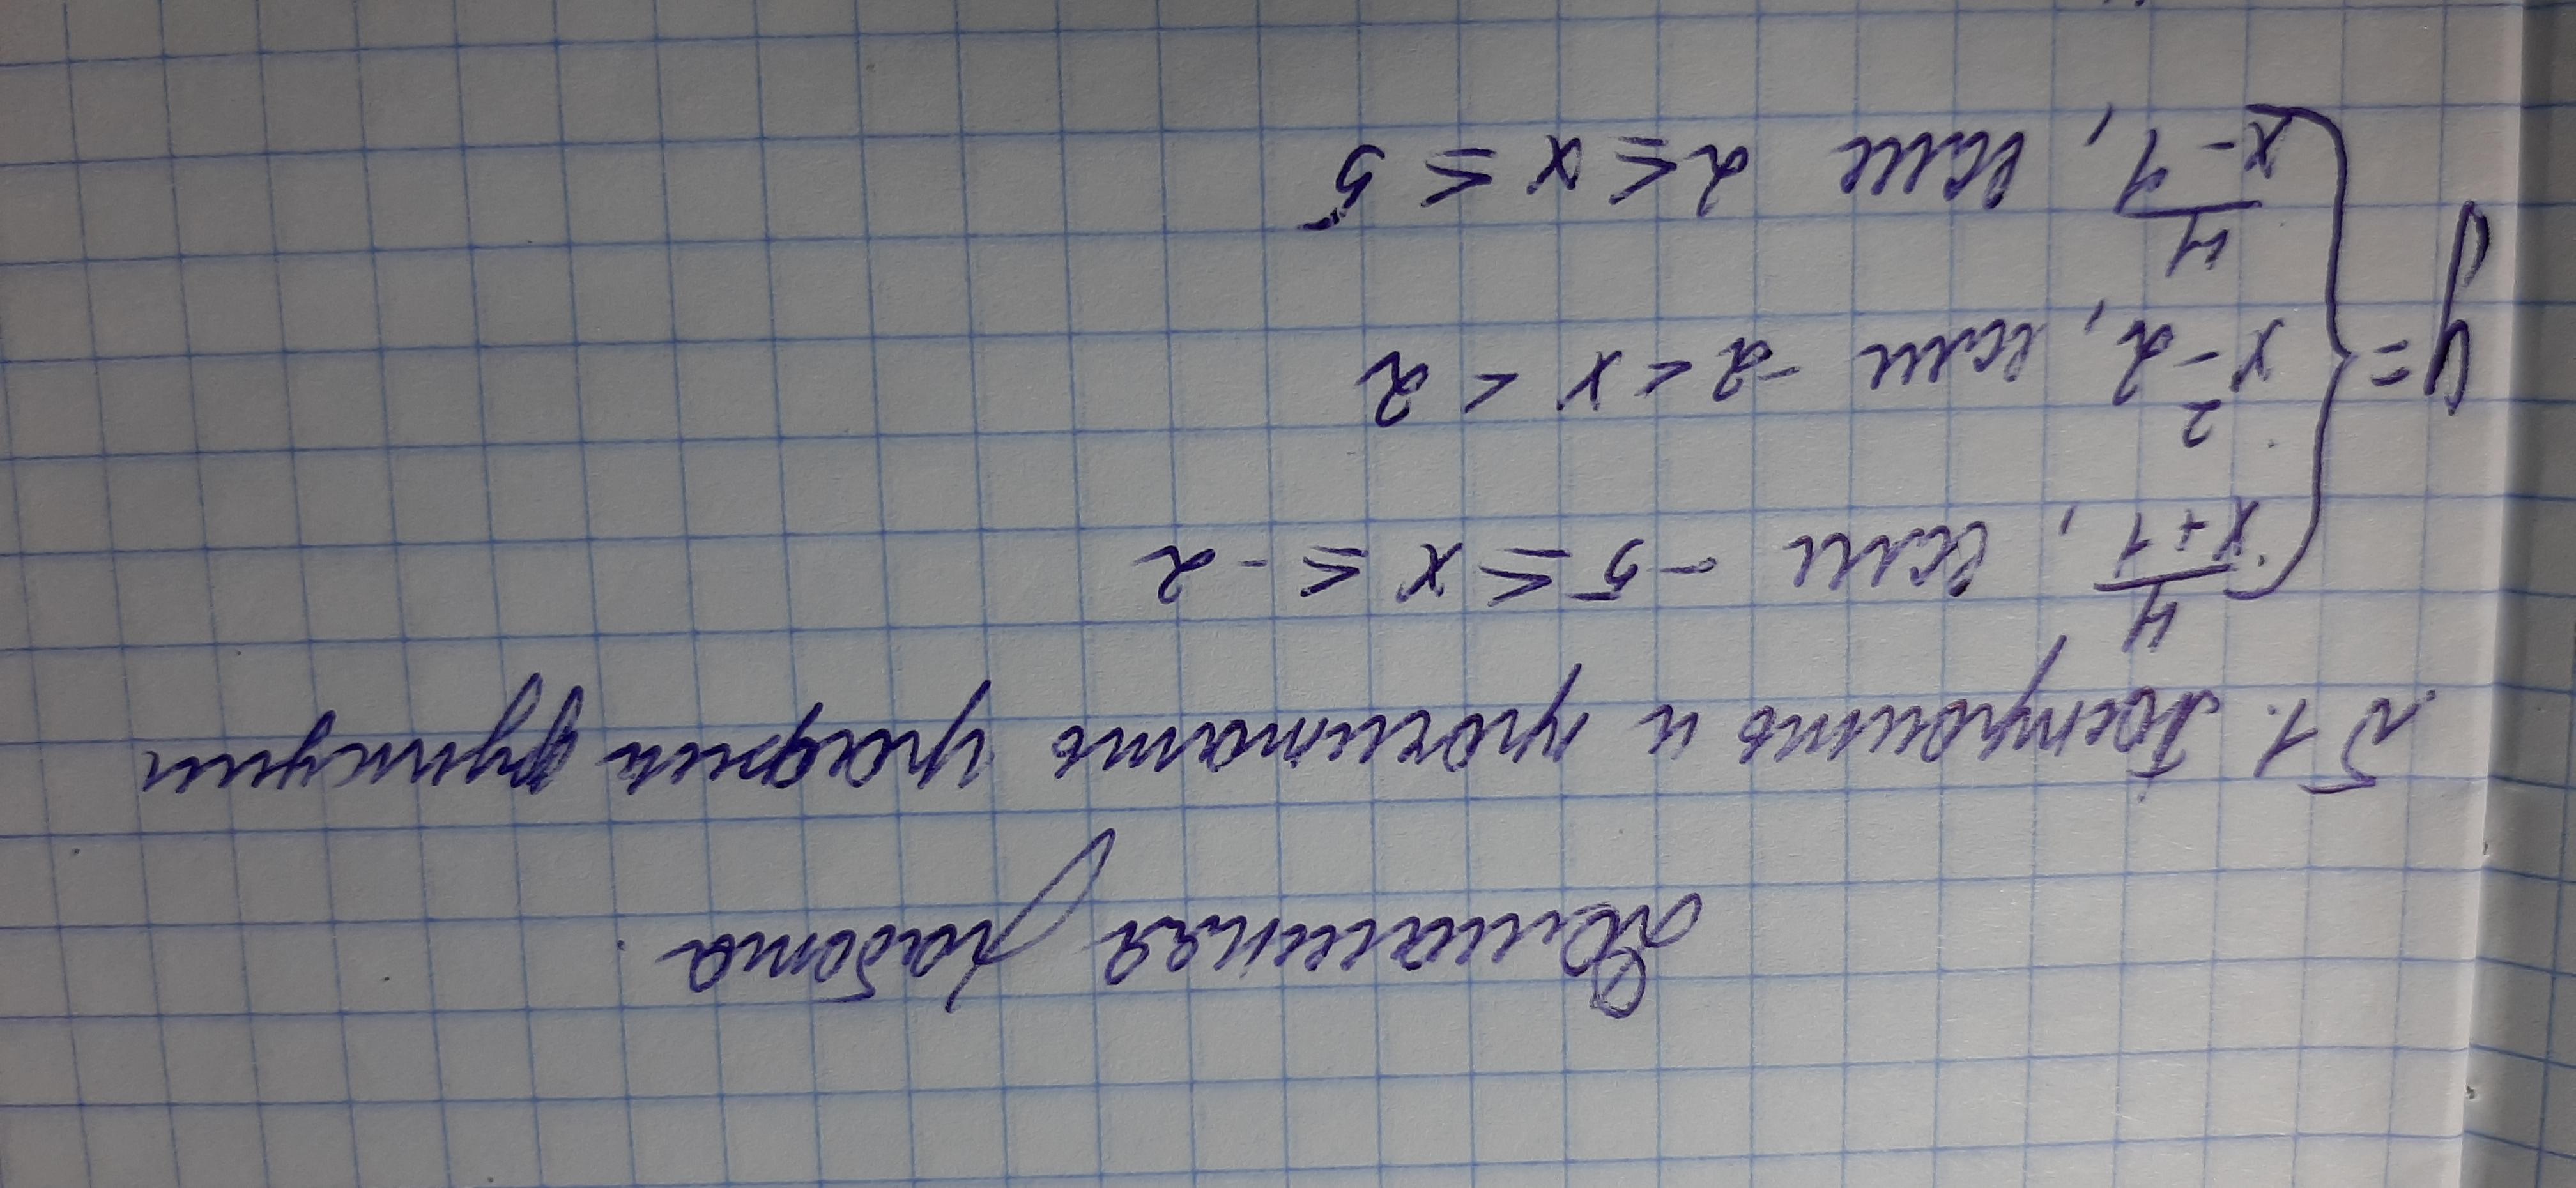 Домашняя работа.
№1. Построить и прочитать график функции
y = { 4/(x+1), если -5 ≤ x ≤ -2
x²-2, если -2 < x < 2
4/(x-1), если 2 ≤ x ≤ 5